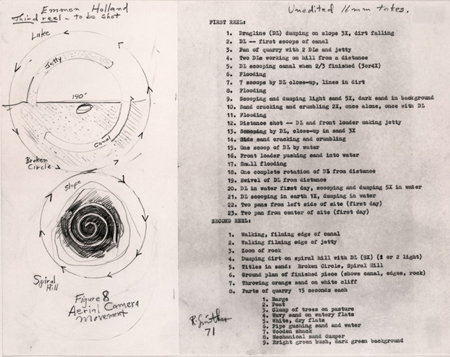 Emmen Holland
Third reel - to be shot
Lake
Jetty
140'
Canal
Broken
Circle
Slope
Spiral
Hill
Figure 8
Aerial Camera
Movement
Unedited 16mm takes.
FIRST REEL:
1. Dragline (DL) dumping on slope 3X, dirt falling
2. DL -- first scoops of canal
3. Pan of quarry with 2 DLs and jetty
4. Two DLs working on hill from a distance
5. DL scooping canal when 2/3 finished
6. Flooding
7. 7 scoops by DL close-up, lines in dirt
8. Flooding
9. Scooping and dumping light sand 5X, dark sand in background
10. Sand cracking and crumbling 2X, once alone, once with DL
11. Flooding
12. Distance shot -- DL and front loader making jetty
13. by DL, close-up in sand 5X
14. sand cracking and crumbling
15. One scoop of DL by water
16. Front loader pushing sand into water
17. Small flooding
18. One complete rotation of DL from distance
19. Swivel of DL from distance
20. DL in water first day, scooping and dumping 5X in water
21. DL scooping in earth 1X, dumping in water
22. Two pans from left side of site (first day)
23. Two pan from center of site (first day)
SECOND REEL:
1. Walking, filming edge of canal
2. Walking filming edge of jetty
3. Zoom of rock
4. Dumping dirt on spiral hill with DL (5X) ( or 2 light)
5. Titles in sand: Broken Circle, Spiral Hill
6. Ground plan of finished piece (shows canal, edges, rock)
7. Throwing orange sand on white cliff
8. Parts of quarry 15 seconds each
1. Barge
2. Peat
3. Clump of trees on pasture
4. Wavy sand on watery flats
5. White, dry flats
6. Pipe gushing sand and water
7. Wooden shack
8. Mechanical sand dumper
9. Bright green bush, dark green background
R. Smithson
71